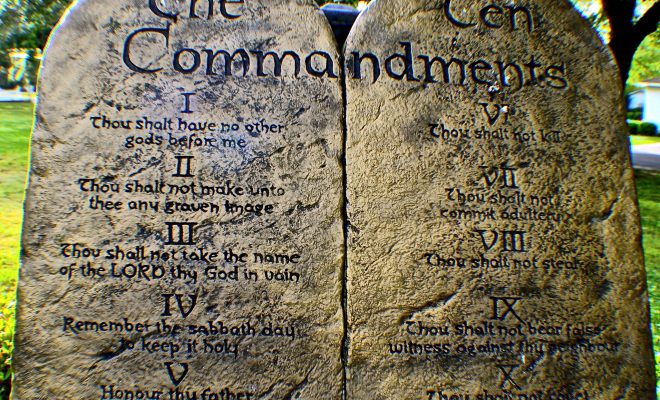 The Ten
Commandments
I
Thou shalt have no other
gods before me
II
Thou shalt not make unto
thee any graven image
III
Thou shall not take the name
of the LORD thy God in vain
IV
Remember the sabbath day
to keep it holy
V
Honour thy father
VI
Thou shalt not kill
VII
Thou shalt not
commit adultery
VIII
Thou shalt not steal
IX
Thou shalt not bear false
witness against thy neighbour
X
Thou shalt not